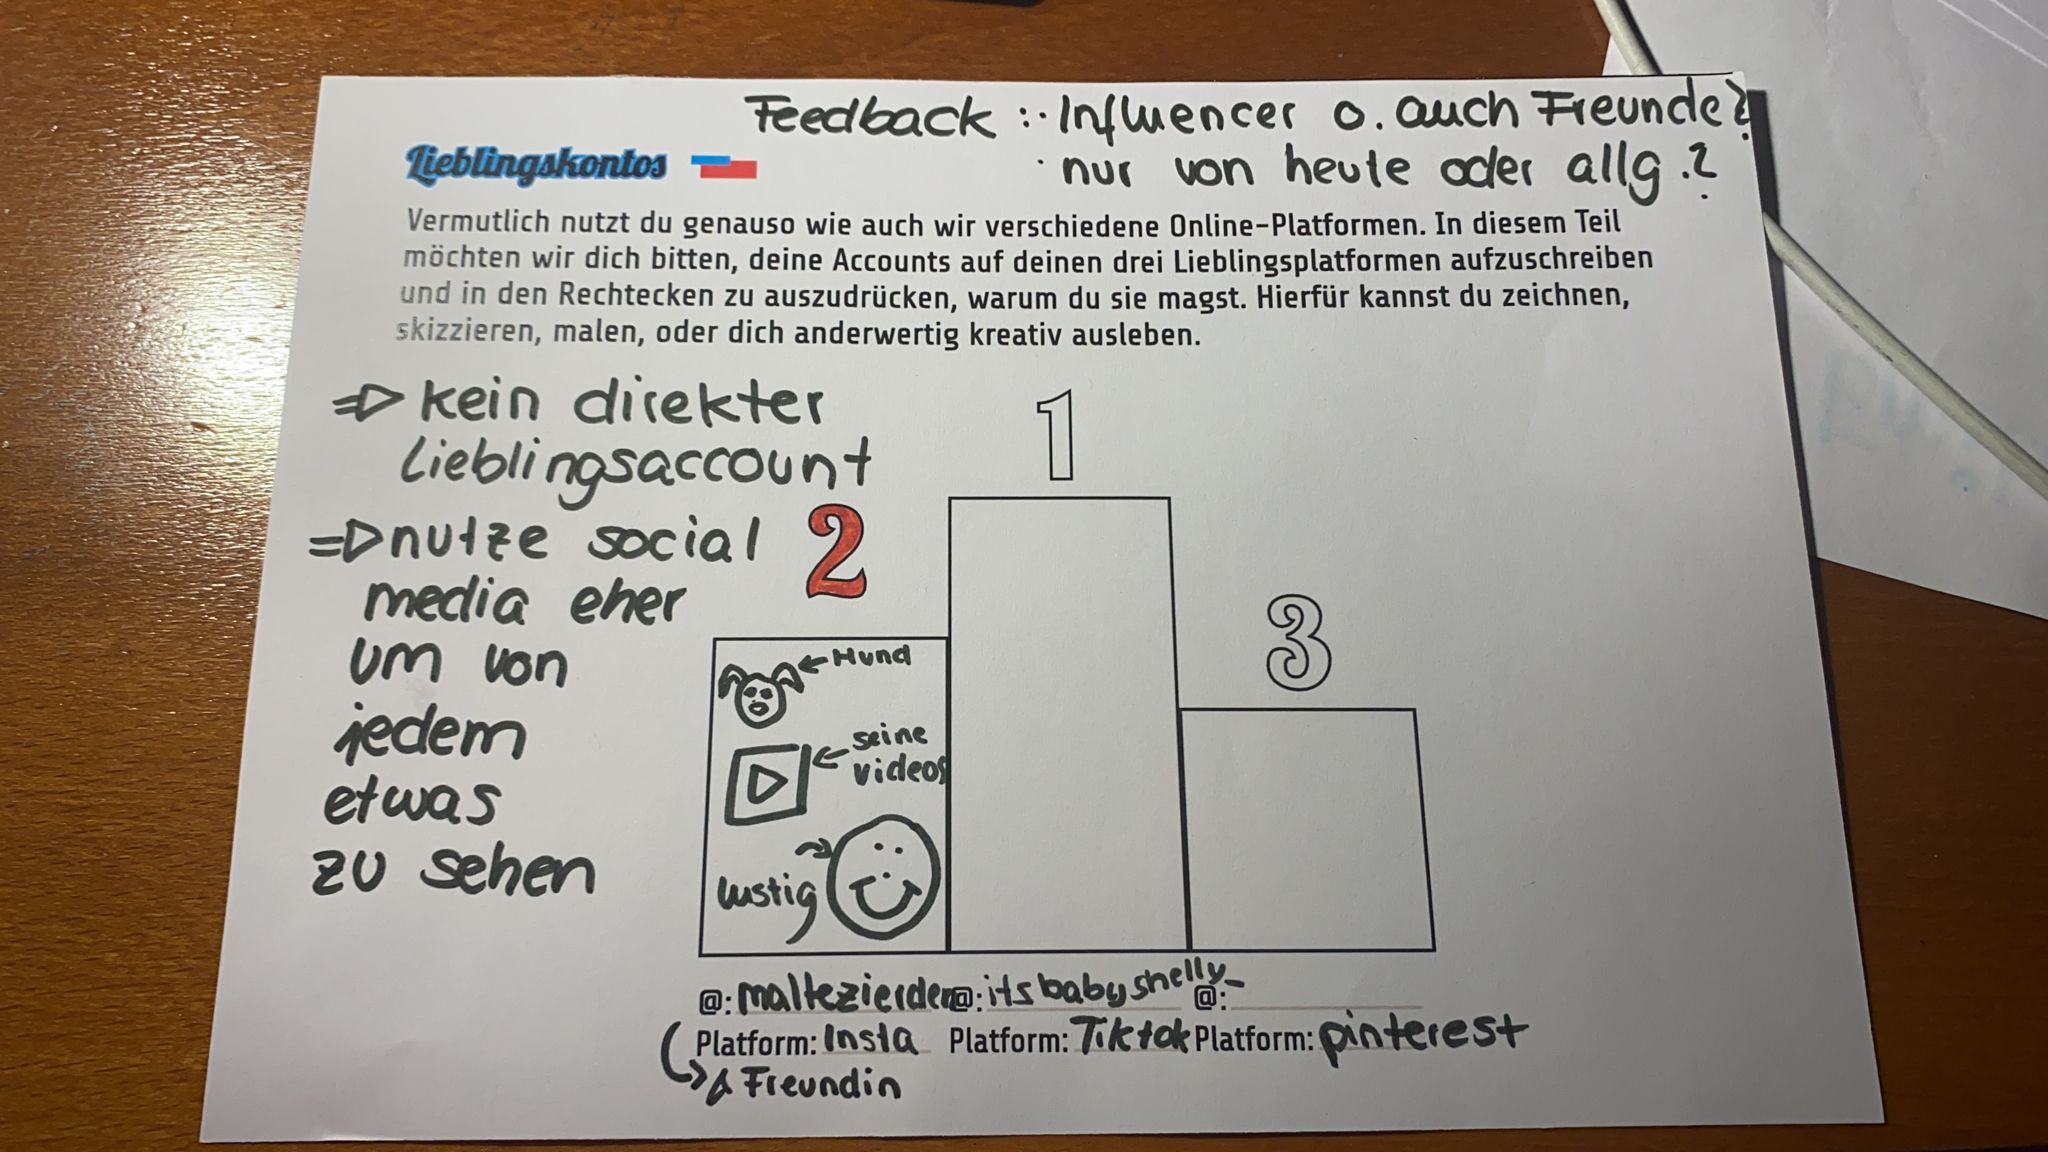 Feedback :· Influencer o. auch Freunde?
· nur von heute oder allg.?
Lieblingskontos
Vermutlich nutzt du genauso wie auch wir verschiedene Online-Platformen. In diesem Teil
möchten wir dich bitten, deine Accounts auf deinen drei Lieblingsplatformen aufzuschreiben
und in den Rechtecken zu auszudrücken, warum du sie magst. Hierfür kannst du zeichnen,
skizzieren, malen, oder dich anderwertig kreativ ausleben.
=> kein direkter
Lieblingsaccount
=> nutze social
media eher
um von
jedem
etwas
zu sehen
1
2
3
← Hund
← seine
videos
lustig
@: maltezierden @: itsbabyshelly_ @:
Platform: Insta Platform: Tiktok Platform: pinterest
Freundin